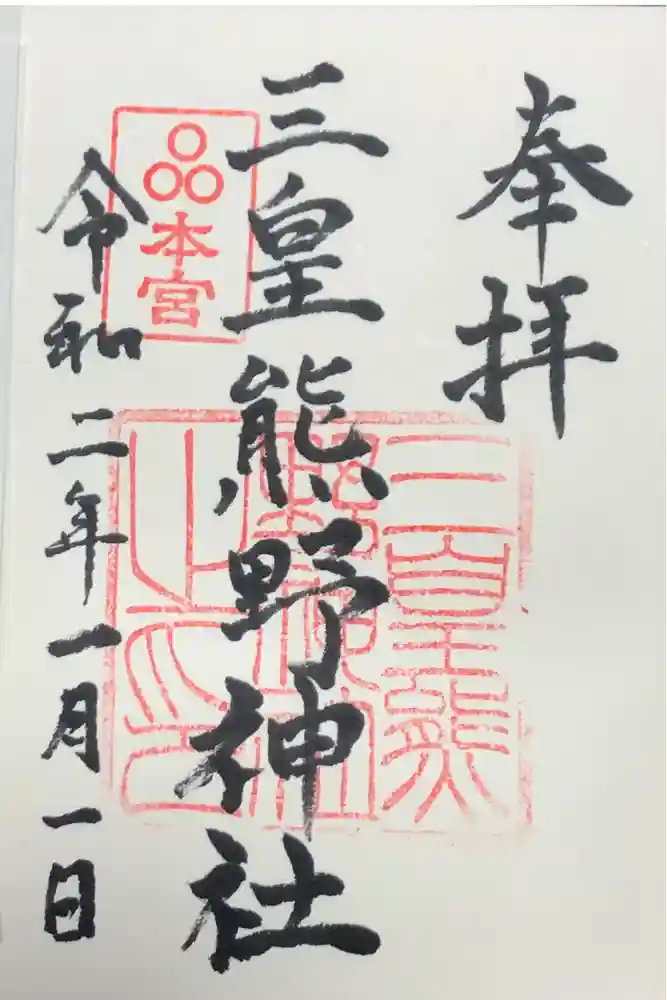 奉拝
三皇熊野神社
本宮
令和二年一月一日
三皇熊
野神社
之印